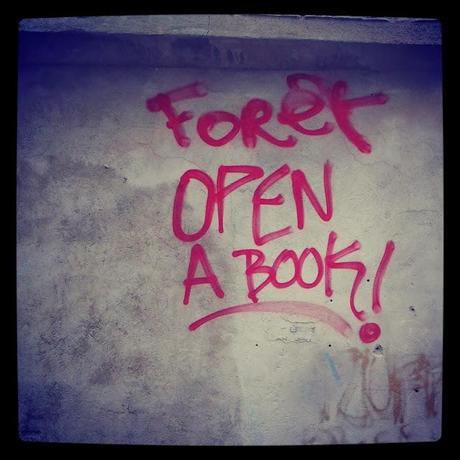 Foret
OPEN
A BOOK!